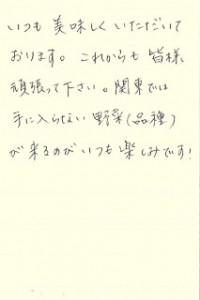 いつも 美味しく いただいて
おります。これからも 皆様
頑張って下さい。関東では
手に入らない 野菜(品種)
が来るのが いつも 楽しみです!